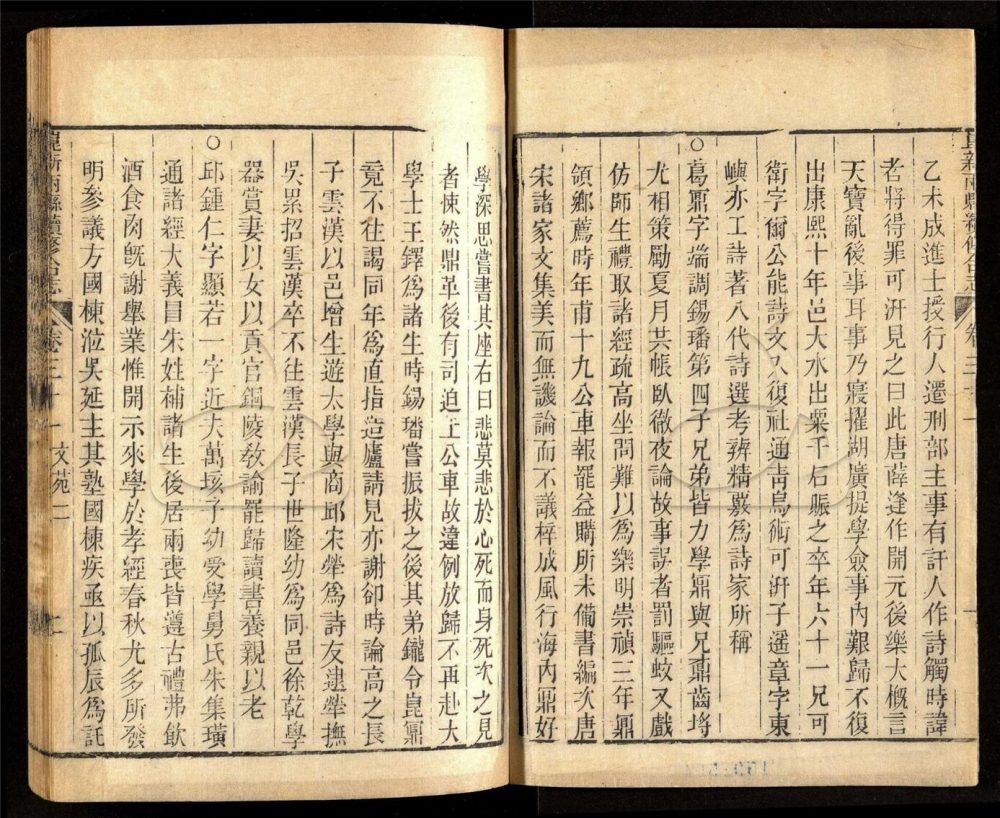 崑新兩縣續修合志 卷三十一
乙未成進士授行人遷刑部主事有訐人作詩觸時諱
者將得罪可汧見之曰此唐薛逢作開元後樂大概言
天寶亂後事耳事乃寢擢湖廣提學僉事內艱歸不復
出康熙十年邑大水出粟千石賑之卒年六十一兄可
衛字爾公能詩文入復社通靑烏術可汧子遥章字東
嶼亦工詩著八代詩選考辨精覈爲詩家所稱
○葛鼏字端調錫璠第四子兄弟皆力學鼏與兄鼐齒埒
尤相策勵夏月共帳臥徹夜論故事誤者罰驅蚊又戲
仿師生禮取諸經疏高坐問難以爲樂明崇禎三年鼏
領鄕薦時年甫十九公車報罷益購所未備書編次唐
宋諸家文集美而無譏論而不議梓成風行海內鼏好
學深思嘗書其座右曰悲莫悲於心死而身死次之見
者悚然鼎革後有司迫上公車故違例放歸不再赴大
學士王鐸爲諸生時錫璠嘗振拔之後其弟鑨令崑鼏
竟不往謁同年爲直指造廬請見亦謝卻時論高之長
子雲漢以邑增生遊太學與商邱宋犖爲詩友逮犖撫
吳累招雲漢卒不往雲漢長子世隆幼爲同邑徐乾學
器賞妻以女以貢官銅陵敎諭罷歸讀書養親以老
○邱鍾仁字顯若一字近夫萬垓子幼受學舅氏朱集璜
通諸經大義冒朱姓補諸生後居兩喪皆遵古禮弗飮
酒食肉旣謝舉業惟開示來學於孝經春秋尤多所發
明參議方國棟涖吳延主其塾國棟疾亟以孤辰爲託
崑新兩縣續修合志 卷三十 文苑二 二